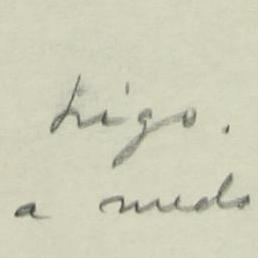 trigo.
a medo